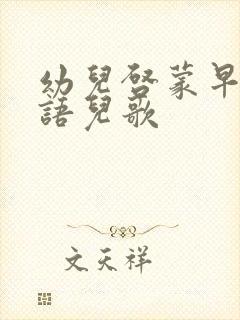 幼兒啓蒙早
語兒歌
文天祥